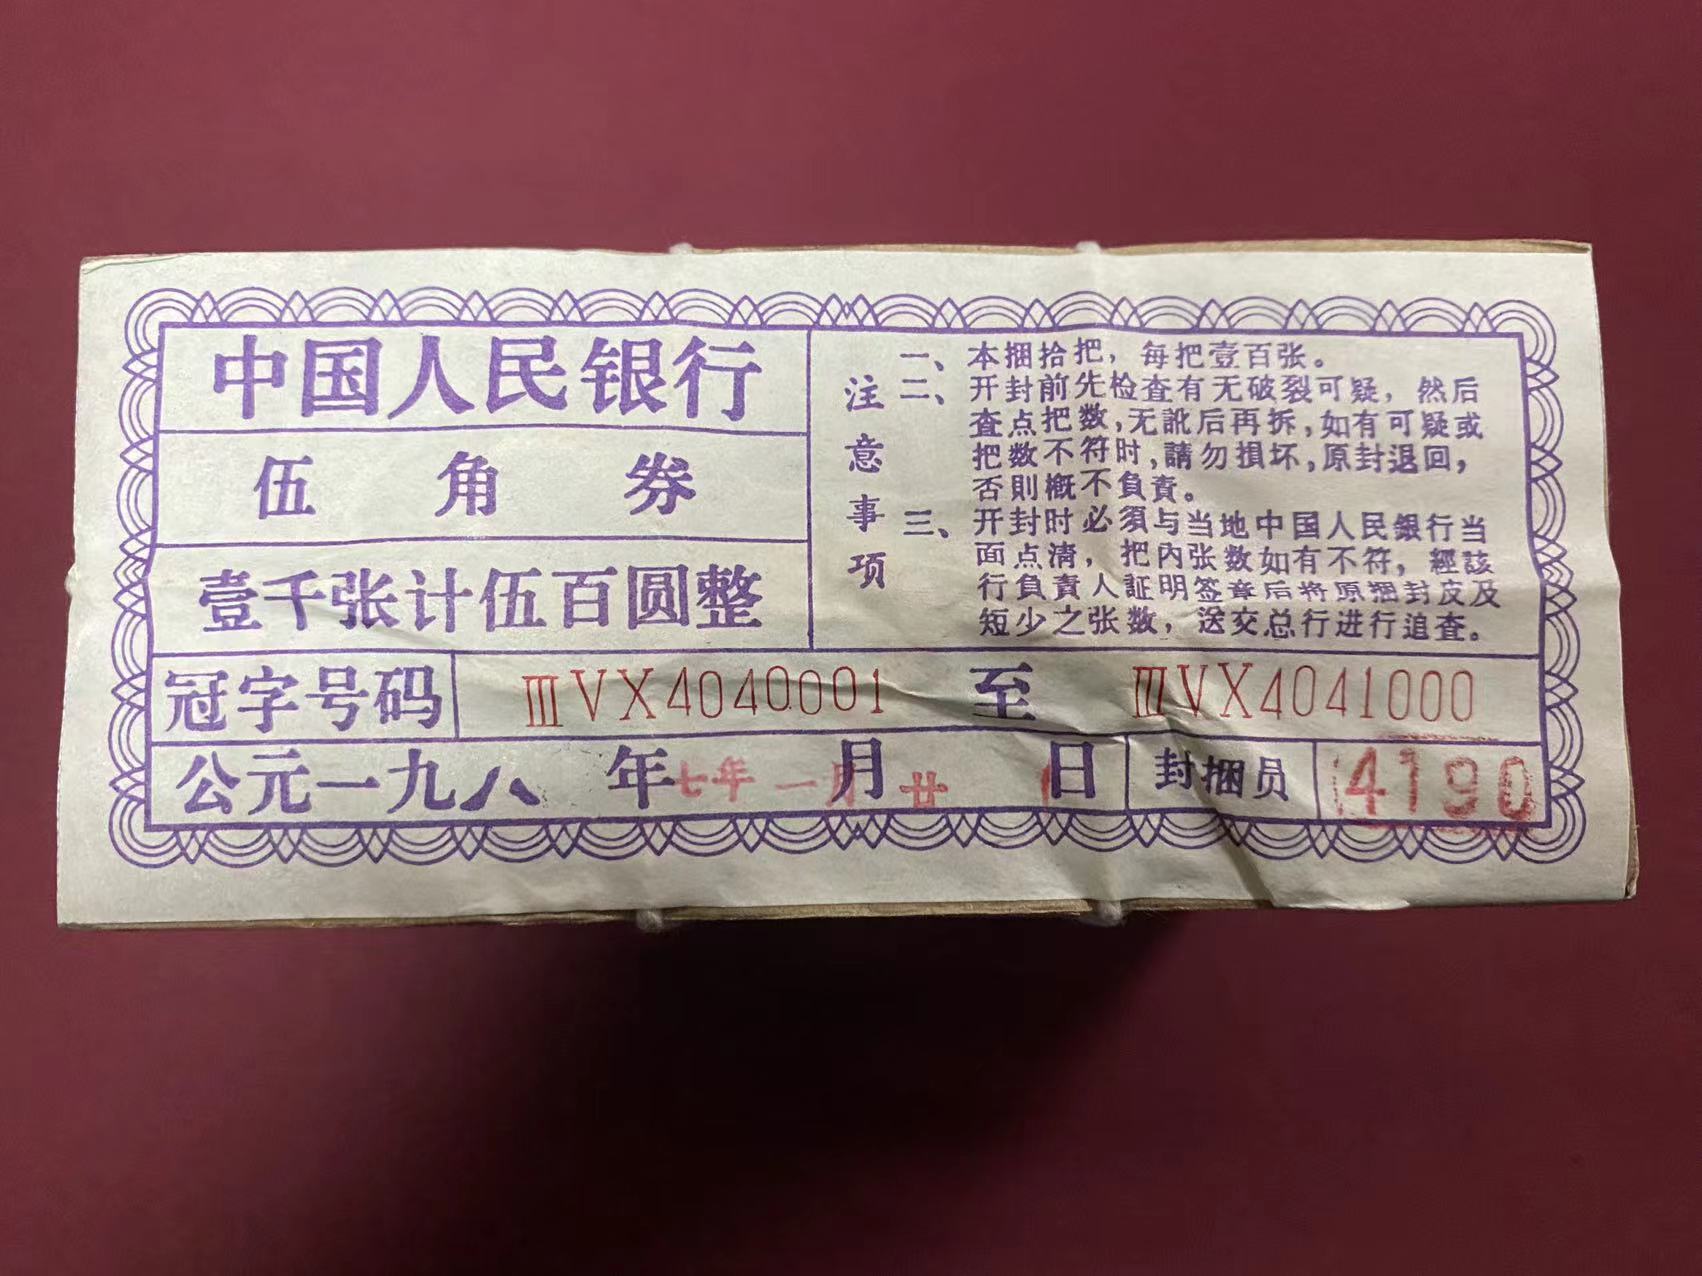 中国人民银行
伍角券
壹千张计伍百圆整
注意事项
一、本捆拾把，每把壹百张。
二、开封前先检查有无破裂可疑，然后
查点把数，无訛后再拆，如有可疑或
把数不符时，請勿損坏，原封退回，
否則概不負責。
三、开封时必須与当地中国人民銀行当
面点清，把內张数如有不符，經該
行負責人証明签章后将原捆封皮及
短少之张数，送交总行进行追查。
冠字号码 ⅢVX4040001 至 ⅢVX4041000
公元一九八 年七年一月月廿 日 封捆员 4190